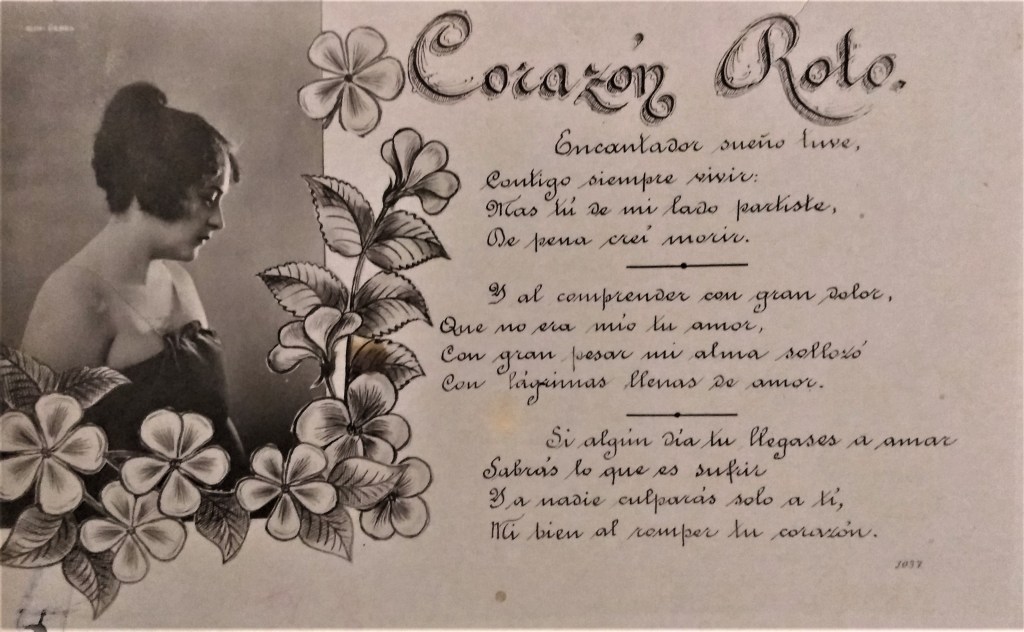 Corazón Roto.
Encantador sueño tuve,
Contigo siempre vivir:
Mas tú de mi lado partiste,
De pena creí morir.
Y al comprender con gran dolor,
Que no era mío tu amor,
Con gran pesar mi alma sollozó
Con lágrimas llenas de amor.
Si algún día tu llegases a amar
Sabrás lo que es sufrir
Y a nadie culparás solo a tí,
Mi bien al romper tu corazón.
1037